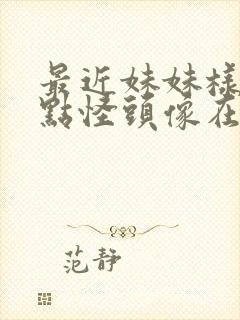 最近妹妹樣
點怪頭像在
范静